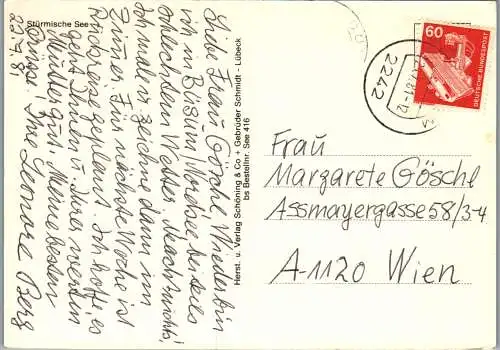 Stürmische See
Liebe Frau Göschl Wieder bin
ich in Büsum Nordsee bei teils
schlechtem Wetter. Macht nichts!
Ich male u. zeichne dann im
Zimmer. Für nächste Woche ist
Rückreise geplant. Ich hoffe, es
geht Ihnen u.
Mutter gut. Meine besten
Grüsse! Ihre Leonore Berg
Herst. u. Verlag Schöning & Co + Gebrüder Schmidt - Lübeck
bs Bestellnr. See 416
2242
60
DEUTSCHE BUNDESPOST
Frau
Margarete Göschl
Assmayergasse 58/3-4
A-1120 Wien